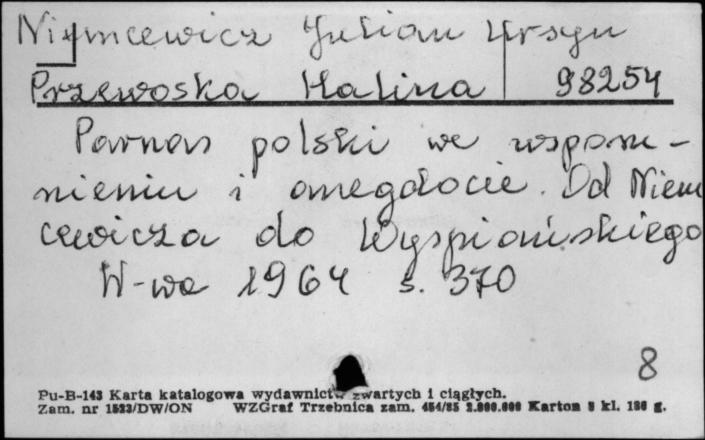 Niemcewicz Julian Ursyn
Przewoska Halina 98254
Parnas polski we wspom-
nieniu i anegdocie. Od Niem
cewicza do Wyspiańskiego
W-wa 1964 s. 370
8
Pu-B-143 Karta katalogowa wydawnictw zwartych i ciągłych.
Zam. nr 1523/DW/ON WZGraf Trzebnica zam. 454/85 2.000.000 Karton 5 kl. 180 g.